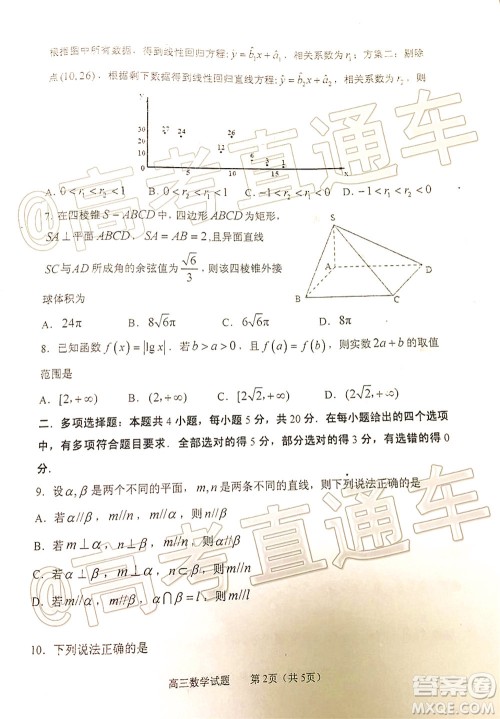 根据图中所有数据，得到线性回归方程：ŷ = b̂₁x + â₁，相关系数为 r₁；方案二：剔除
点(10,26)，根据剩下数据得到线性回归直线方程：ŷ = b̂₂x + â₂，相关系数为 r₂．则
y
30
26
20
10
0
24
26
5
10
15
x
A. 0 < r₁ < r₂ < 1 B. 0 < r₂ < r₁ < 1 C. −1 < r₁ < r₂ < 0 D. −1 < r₂ < r₁ < 0
7. 在四棱锥 S − ABCD 中，四边形 ABCD 为矩形，
SA⊥平面 ABCD，SA = AB = 2，且异面直线
SC 与 AD 所成角的余弦值为 √6/3，则该四棱锥外接
球体积为
S
A
D
B
C
A. 24π B. 8√6π C. 6√6π D. √6π
8. 已知函数 f(x) = |lg x|．若 b > a > 0，且 f(a) = f(b)，则实数 2a + b 的取值
范围是
A. [2, +∞) B. (2, +∞) C. [2√2, +∞) D. (2√2, +∞)
二．多项选择题：本题共 4 小题，每小题 5 分，共 20 分．在每小题给出的四个选项
中，有多项符合题目要求．全部选对的得 5 分，部分选对的得 3 分，有选错的得 0
分．
9. 设 α, β 是两个不同的平面，m, n 是两条不同的直线，则下列说法正确的是
A. 若 α // β，m // n，m // α，则 n // β
B. 若 m ⊥ α，n ⊥ β，
C. 若 α ⊥ β，m // α，n // β，
D. 若 m // n，m // β，α∩β = l，m // α，则 n // l
10. 下列说法正确的是
高三数学试题 第 2页（共 5页）
@高考直通车
@高考直通车
答案圈
MXQE.COM